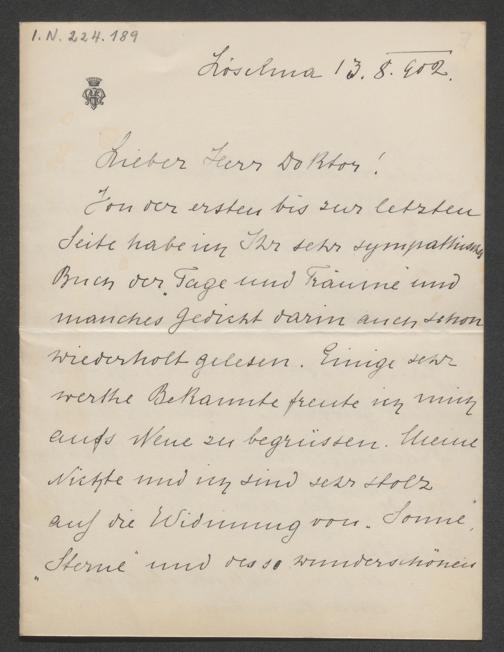 I. N. 224.189
Löschna 13. 8. 902.
Lieber Herr Doktor!
Von der ersten bis zur letzten
Seite habe ich Ihr sehr sympathisches
Buch der „Tage und Träume" und
manches Gedicht darin auch schon
wiederholt gelesen. Einige sehr
werthe Bekannte freute ich mich
aufs Neue zu begrüssen. Meine
Nichte und ich sind sehr stolz
auf die Widmung von „Sonne",
„Sterne" und des so wunderschönen